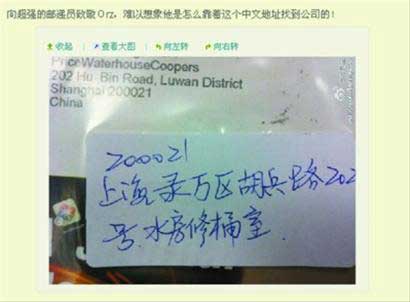 向超强的邮递员致敬 Orz，难以想象他是怎么靠着这个中文地址找到公司的！
收起 | 查看大图 | 向左转 | 向右转
PriceWaterhouseCoopers
202 Hu Bin Road, Luwan District
Shanghai 200021
China
200021
上海录万区胡兵路202
号.水房修桶室.